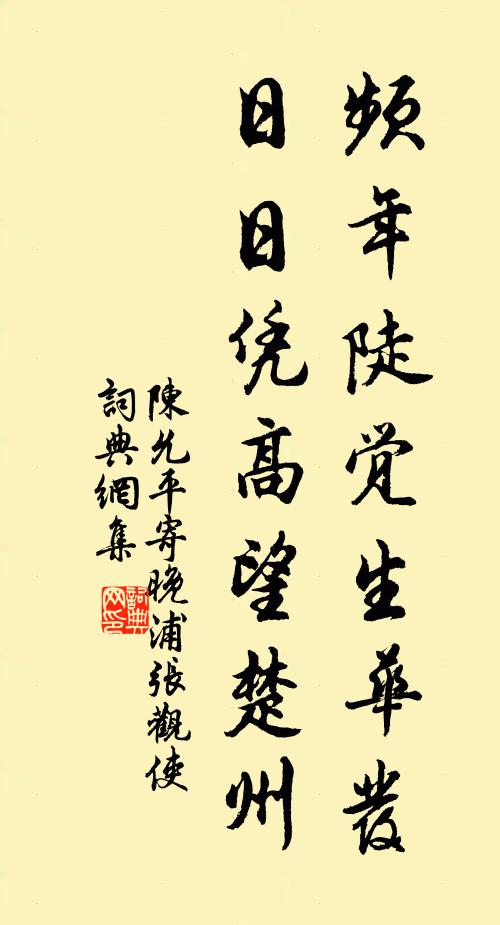 頻年陡觉生華發
日日凭高望楚州
陳允平寄晚浦張觀使
詞典網集
詞典
网印